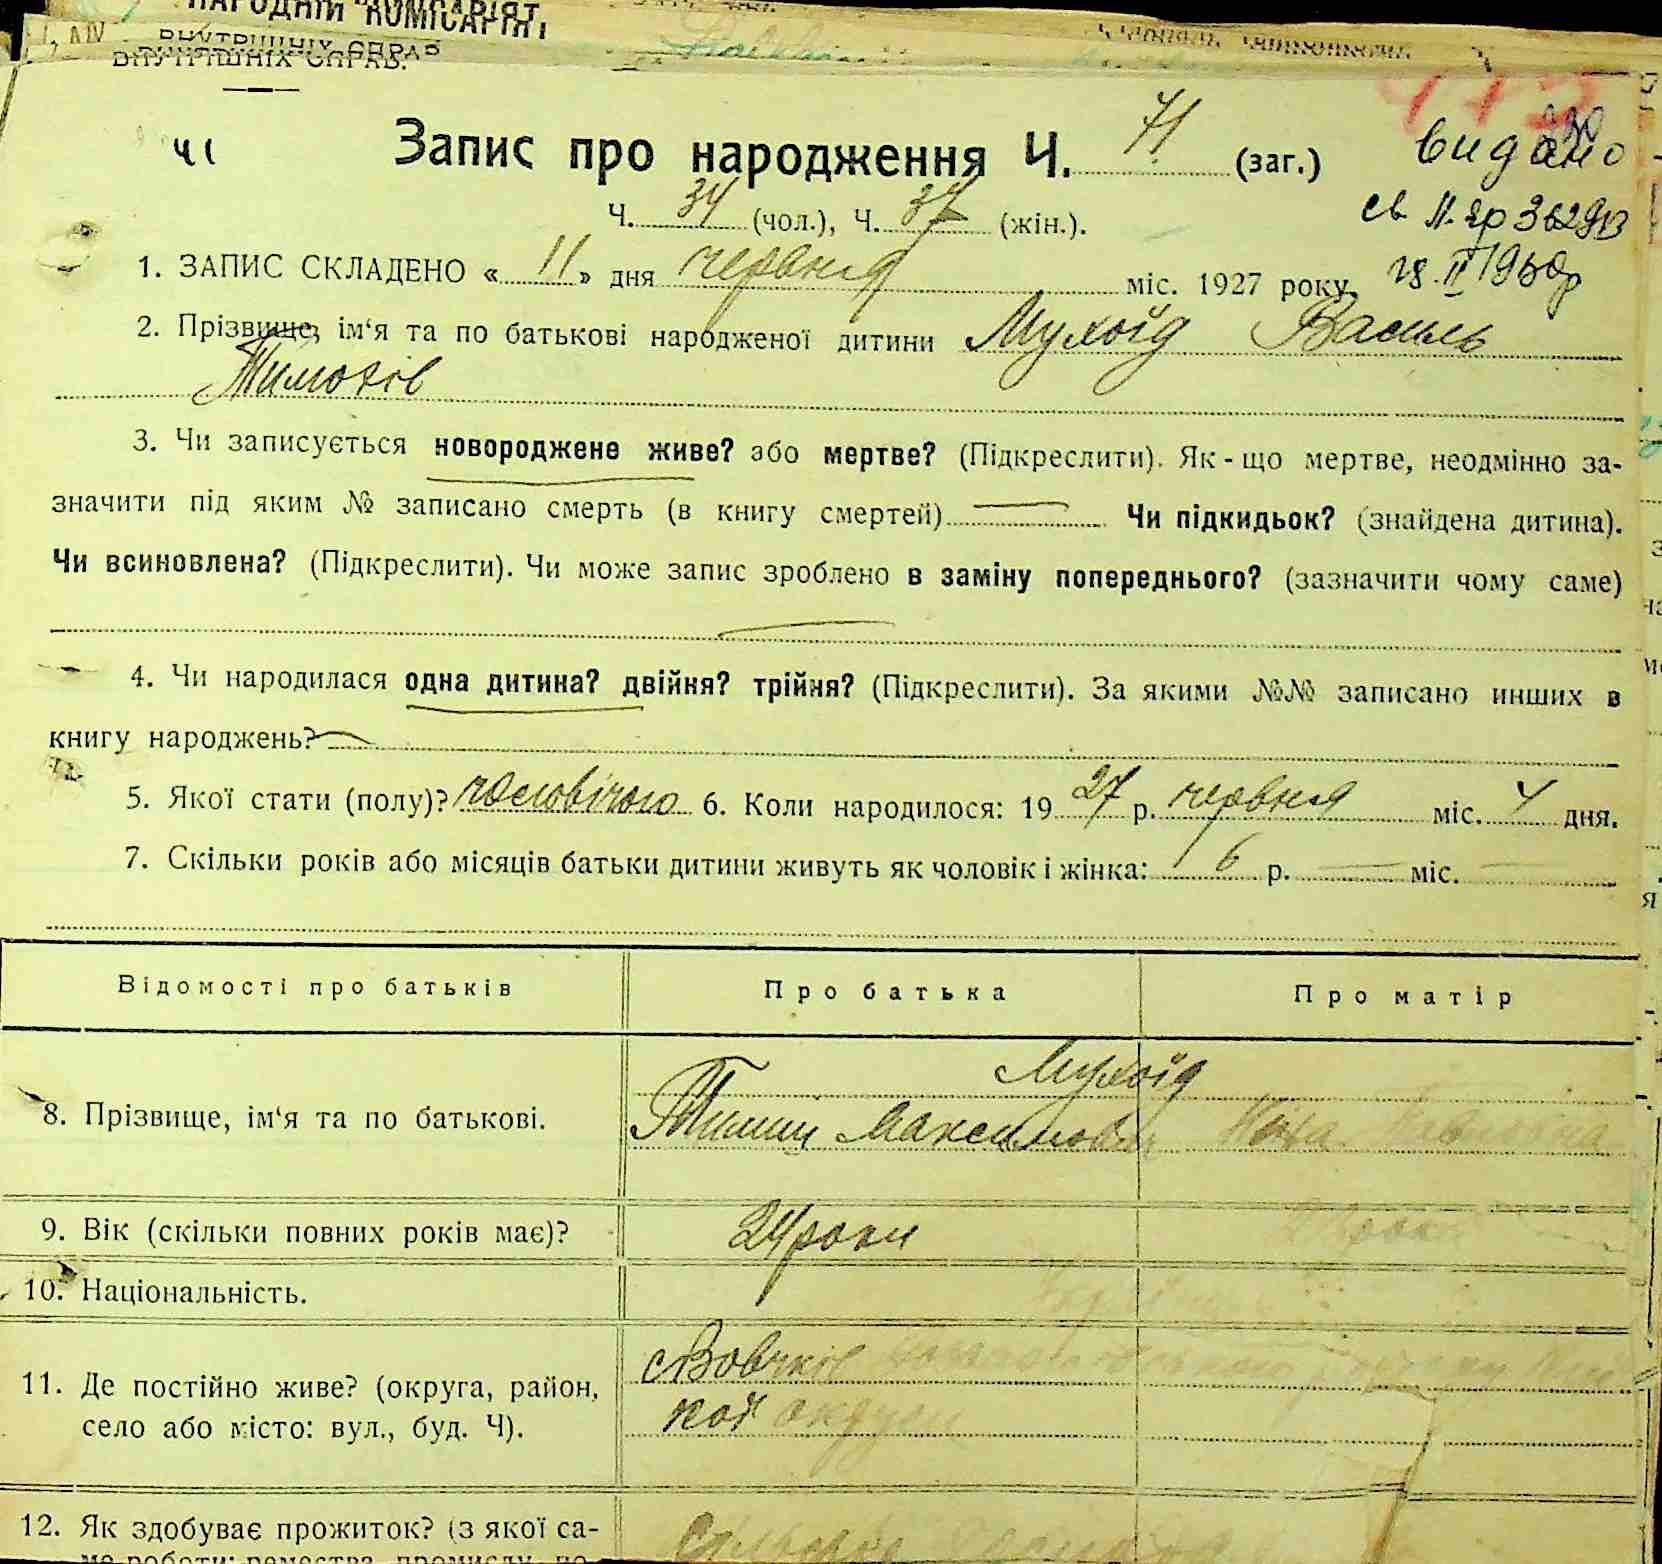 НАРОДНІЙ КОМІСАРІЯТ
ВНУТРІШНІХ СПРАВ.
Ч 1
Запис про народження Ч. 71 (заг.)
видано
Ч. 34 (чол.), Ч. 37 (жін.).
1. ЗАПИС СКЛАДЕНО « 11 » дня червня міс. 1927 року.
2. Прізвище, ім‘я та по батькові народженої дитини Мухоїд Василь
Тимохів
3. Чи записується новороджене живе? або мертве? (Підкреслити). Як-що мертве, неодмінно за-
значити під яким № записано смерть (в книгу смертей) Чи підкидьок? (знайдена дитина).
Чи всиновлена? (Підкреслити). Чи може запис зроблено в заміну попереднього? (зазначити чому саме)
4. Чи народилася одна дитина? двійня? трійня? (Підкреслити). За якими №№ записано инших в
книгу народжень?
5. Якої стати (полу)? чоловічого 6. Коли народилося: 19 27 р. червня міс. 4 дня.
7. Скільки років або місяців батьки дитини живуть як чоловік і жінка: 6 р. — міс. —
Відомості про батьків Про батька Про матір
Мухоїд
8. Прізвище, ім‘я та по батькові.
9. Вік (скільки повних років має)? 24 роки
10. Національність.
11. Де постійно живе? (округа, район,
село або місто: вул., буд. Ч).
с Вовчків
кой округи
12. Як здобуває прожиток? (з якої са-